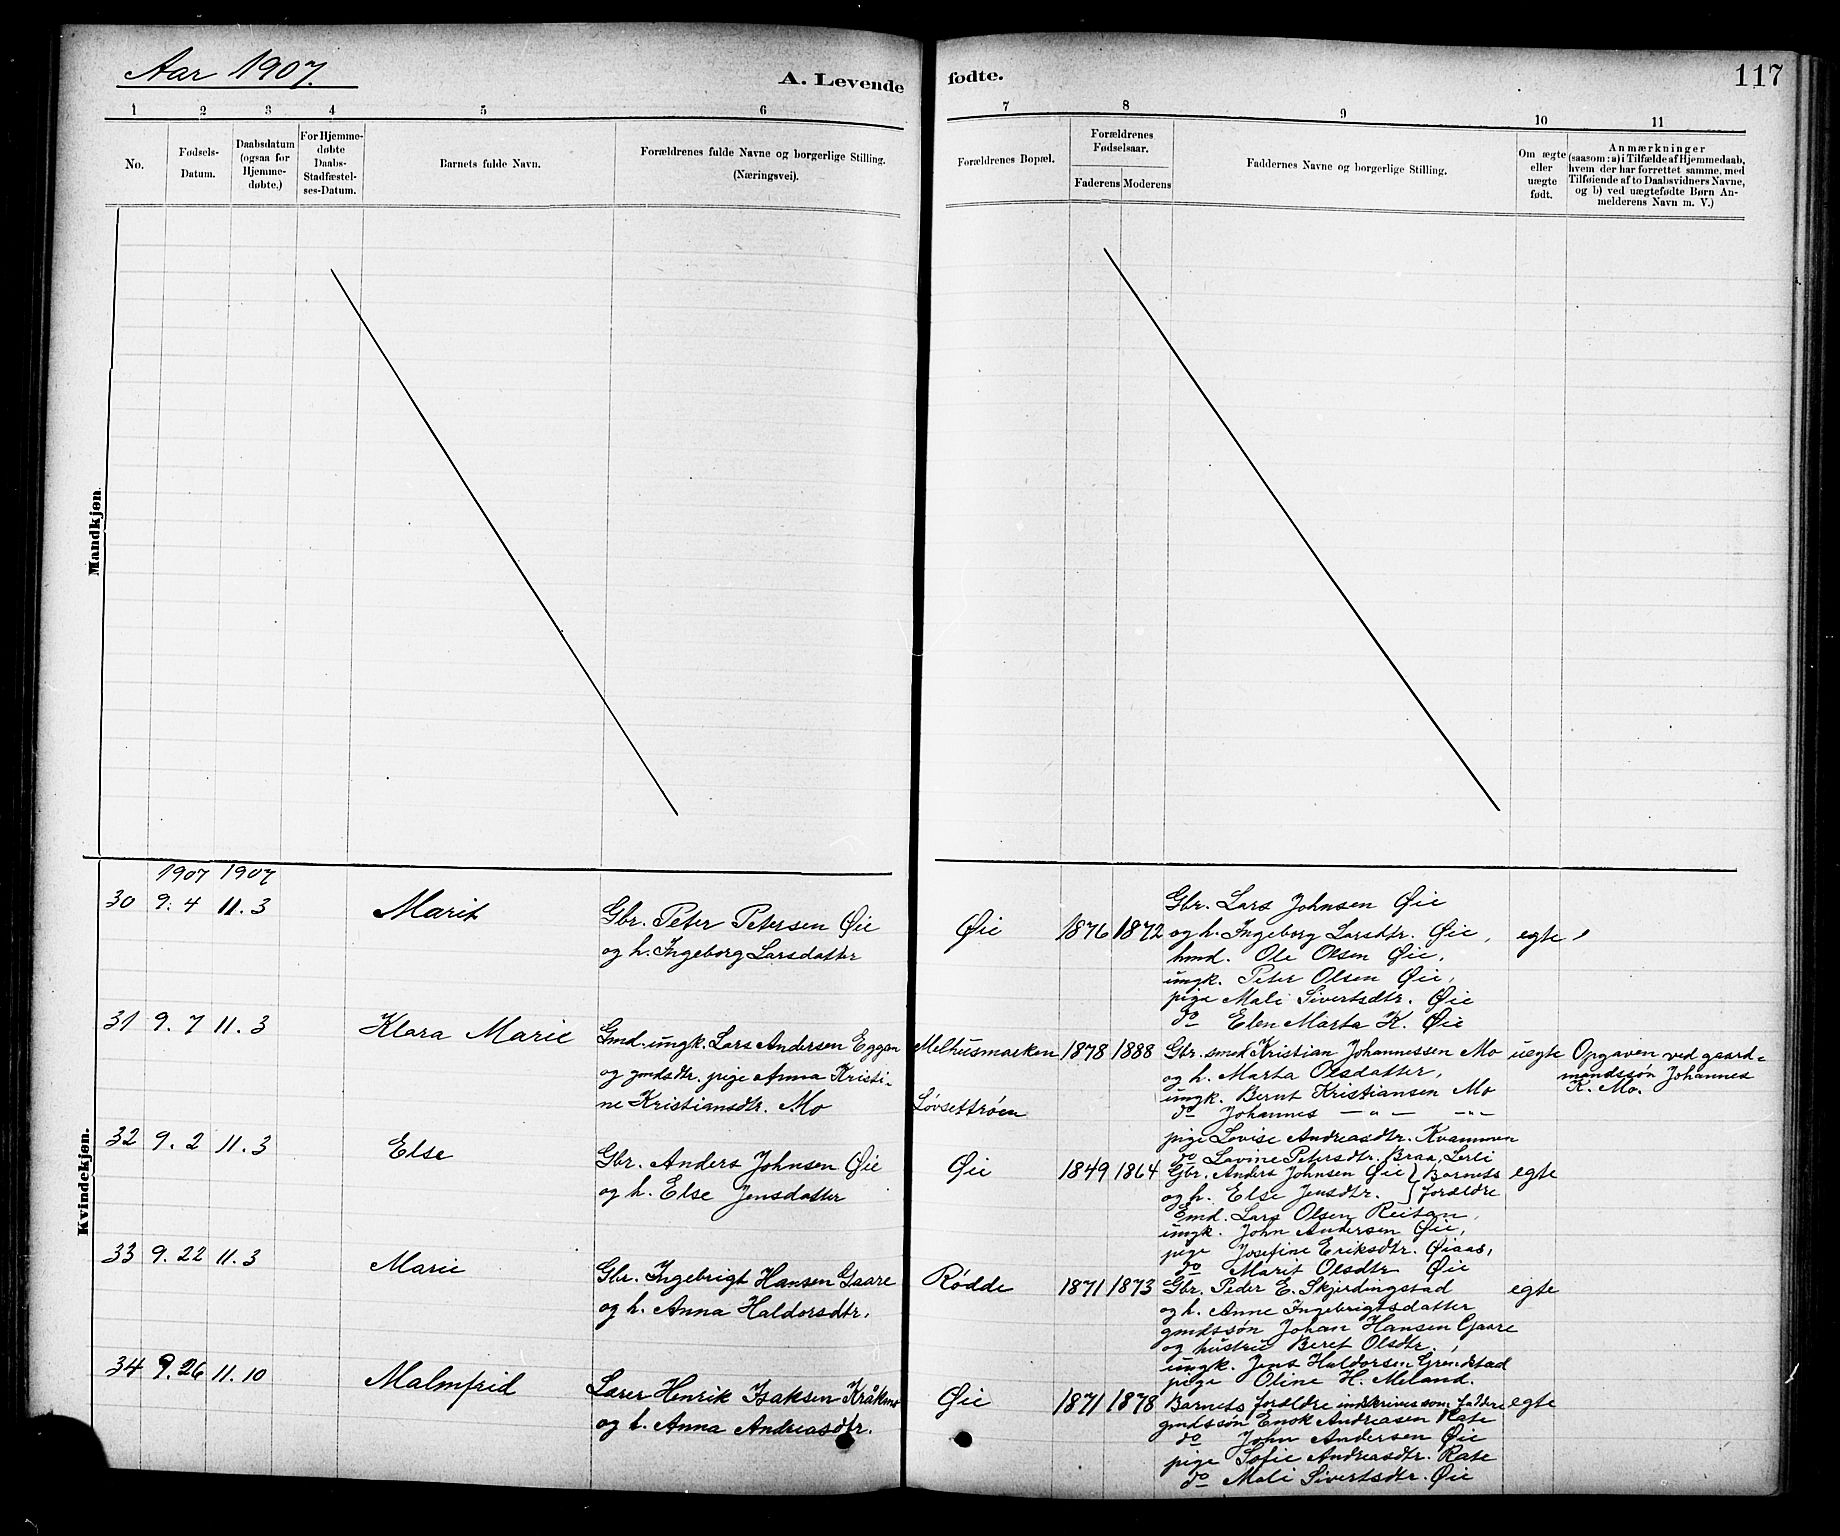 Aar 1907.
A. Levende fødte.
117
1 2 3 4 5 6 7 8 9 10 11
No.
Fødsels-
Datum.
Daabsdatum
(ogsaa for
Hjemme-
døbte.)
For Hjemme-
døbte
Daabs-
Stadfæstel-
ses-Datum.
Barnets fulde Navn.
Forældrenes fulde Navne og borgerlige Stilling.
(Næringsvei).
Forældrenes Bopæl.
Forældrenes
Fødselsaar.
Faderens Moderens
Faddernes Navne og borgerlige Stilling.
Om ægte
eller
uægte
født.
Anmærkninger
(saasom: a) i Tilfælde af Hjemmedaab,
hvem der har forrettet samme, med
Tilføiende af to Daabsvidners Navne,
og b) ved uægtefødte Børn An-
melderens Navn m. V.)
Mandkjøn.
Kvindekjøn.
1907 1907
30 9.4 11.3 Marit
Gbr. Peter Petersen Øie
og h. Ingeborg Larsdatter
Øie 1876 1872
Gbr. Lars Johnsen Øie
og h. Ingeborg Larsdtr. Øie,
hmd. Ole Olsen Øie,
ungk. Peter Olsen Øie,
pige Mali Sivertsdtr. Øie
do Elen Marta K. Øie
egte
31 9.7 11.3 Klara Marie
Gmd. ungk. Lars Andersen Eggan
og gmdsdtr. pige Anna Kristi-
ne Kristiansdtr. Mo
Melhusmarken
Løvsettrøen
1878 1888
Gbr. smed Kristian Johannessen Mo
og h. Marta Olsdatter,
ungk. Bernt Kristiansen Mo
do Johannes — " — — " —
pige Lovise Andreasdtr. Kvammen
do Lavine Petersdtr. Braa, Lerli
uegte
Opgaven ved gaard-
mandssøn Johannes
K. Mo.
32 9.2 11.3 Else
Gbr. Anders Johnsen Øie
og h. Else Jensdatter
Øie 1849 1864
Gbr. Anders Johnsen Øie } Barnets
og h. Else Jensdtr. } forældre
Emd. Lars Olsen Reitan,
ungk. John Andersen Øie,
pige Josefine Eriksdtr. Øiaas,
do Marit Olsdtr Øie
egte
33 9.22 11.3 Marie
Gbr. Ingebrigt Hansen Gaare
og h. Anna Haldorsdtr.
Rødde 1871 1873
Gbr. Peder E. Skjerdingstad
og h. Anne Ingebrigtsdatter
gmdssøn Johan Hansen Gaare
og hustru Beret Olsdtr.,
ungk. Jens Haldorsen Grendstad
pige Oline H. Meland.
egte
34 9.26 11.10 Malmfrid
Lærer Henrik Isaksen Kråkmo
og h. Anna Andreasdtr.
Øie 1871 1878
Barnets forældre indskrives som faddere
gmdssøn Enok Andreasen Rate
do John Andersen Øie
pige Sofie Andreasdtr. Rate
do Mali Sivertsdtr. Øie
egte